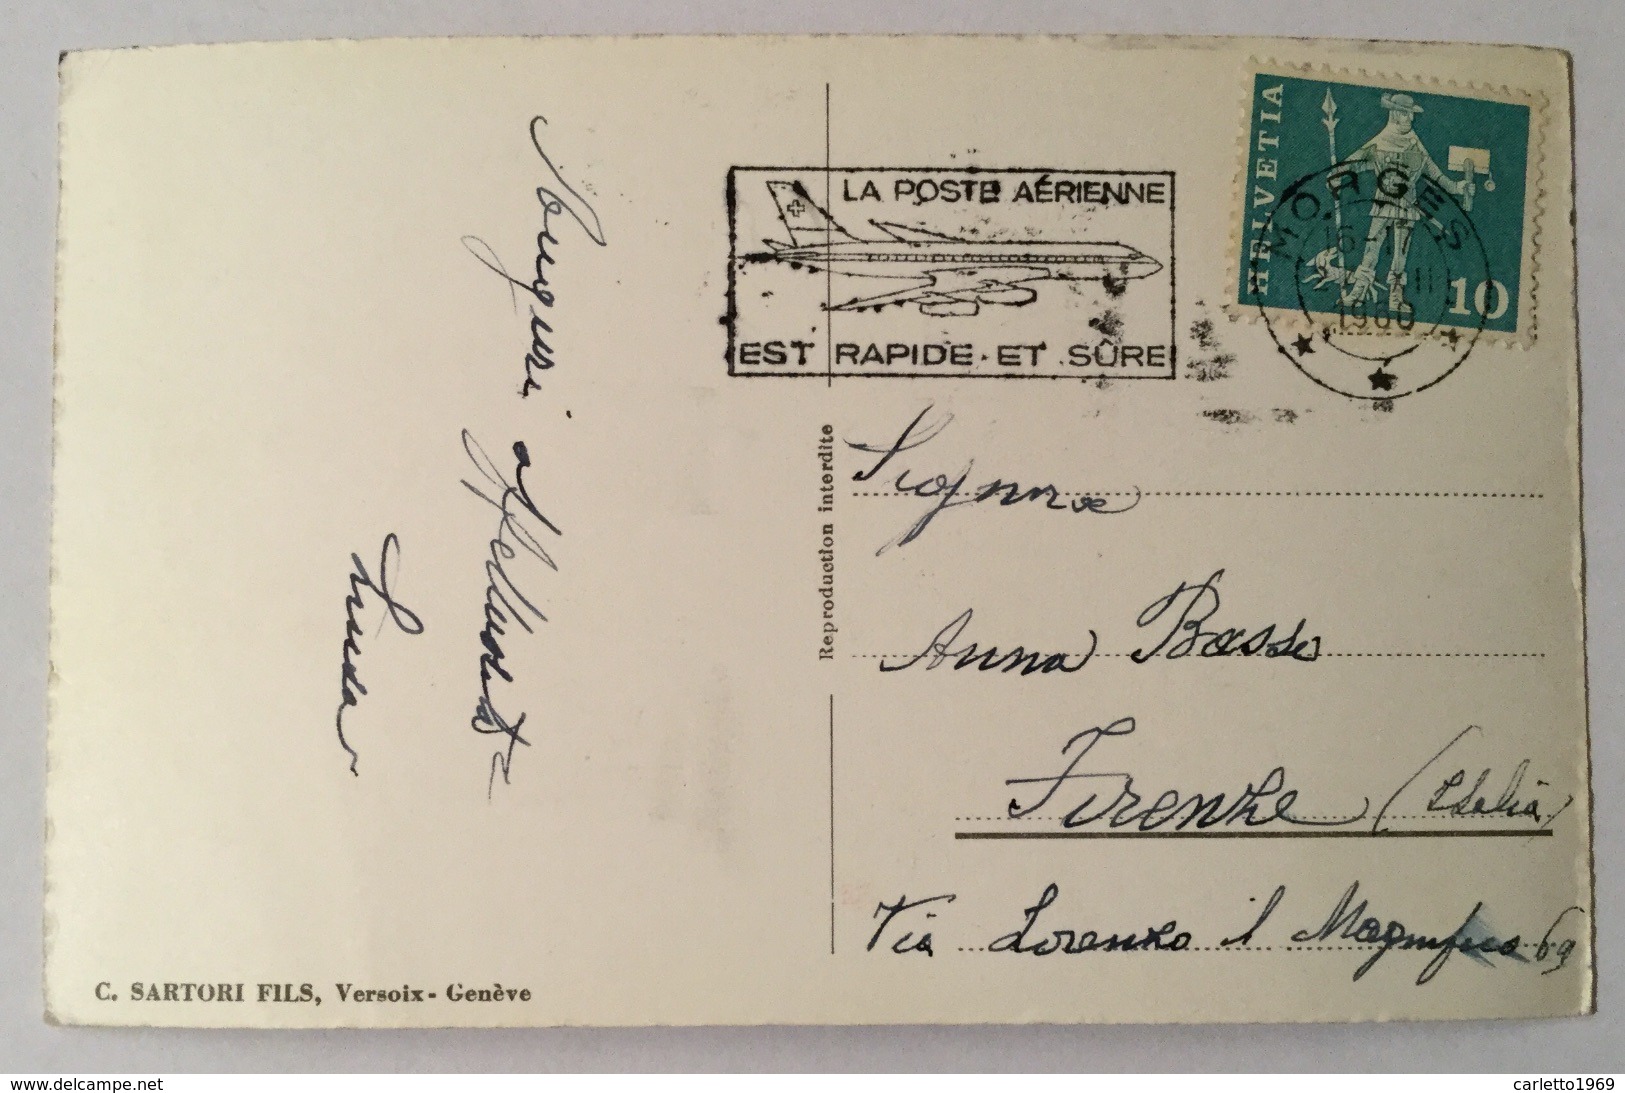 Auguri affettuosità
Luisa
C. SARTORI FILS, Versoix - Genève
Reproduction interdite
LA POSTE AÉRIENNE
EST RAPIDE ET SÛRE
HELVETIA
10
MORGES
16-17
1960
Anna Basse
Firenze (Italia)
Via Lorenzo il Magnifico 69
www.delcampe.net
carletto1969